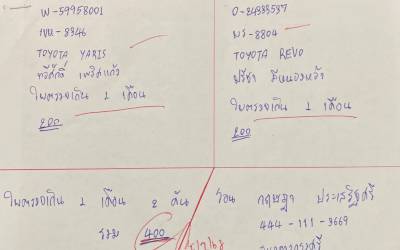 W-59958001
ขน-8346
TOYOTA YARIS
ใบตรวจเกิน 1 เดือน
200
O-24335537
พร-8804
TOYOTA REVO
ปรีชา มีหนองหว้า
ใบตรวจเกิน 1 เดือน
200
ใบตรวจเกิน 1 เดือน 2 คัน
รวม 400
โอน กฤษฎา ประเสริฐศรี
444-111-3669